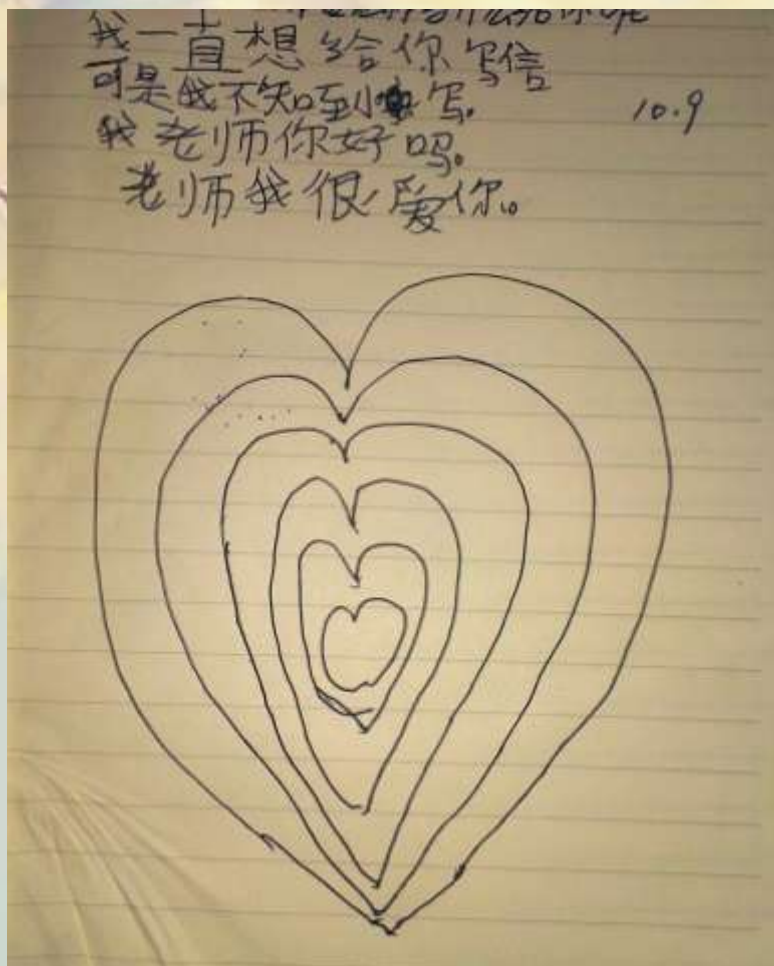 什么给你呢
我一直想给你写信
可是我不知咥到小写. 10.9
我老师你好吗。
老师我很爱你。